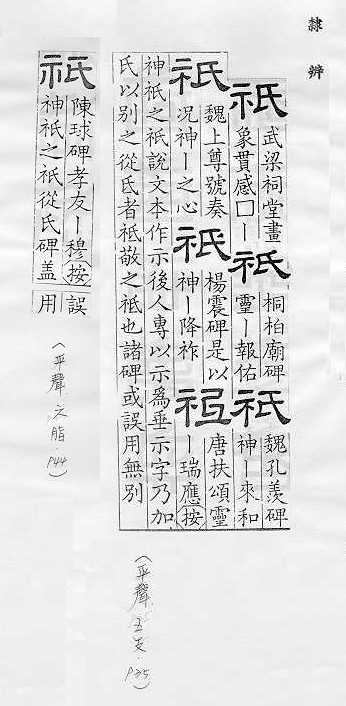 隸辨
祇
武梁祠堂畫
象貫感囗丨
祇
桐柏廟碑
靈丨報佑
祇
魏孔羨碑
神丨來和
祇
魏上尊號奏
况神丨之心
祇
楊震碑是以
神丨降祚
祇
唐扶頌靈
丨瑞應按
神祇之祇說文本作示後人專以示爲垂示字乃加
氏以别之從氐者祗敬之祗也諸碑或誤用無別
(平聲 五支 P35)
祇
陳球碑孝友丨穆按
神祇之祇從氏碑盖
誤
用
(平聲 六脂 P44)